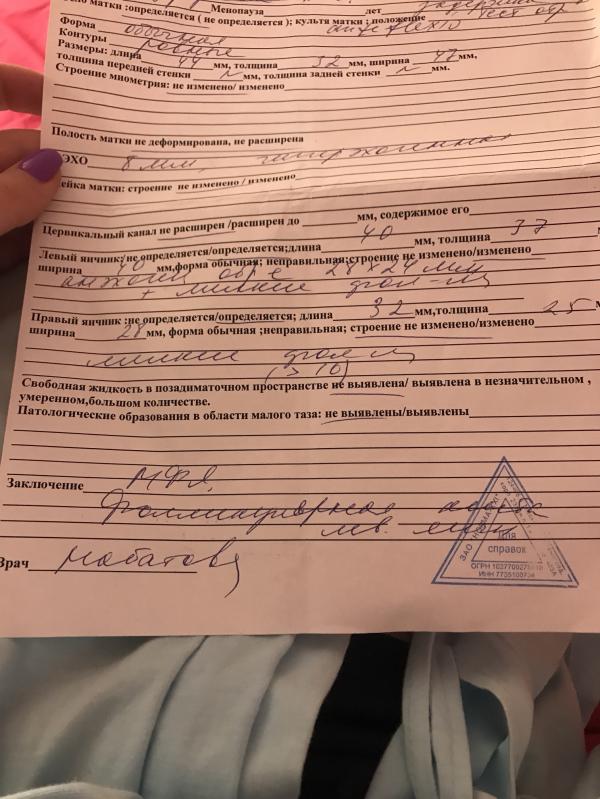 матки :определяется ( не определяется ); культя матки ; положение
Менопауза лет
Форма обычная anteflexio
Контуры ровные
Размеры: длина 44 мм, толщина 32 мм, ширина 47 мм,
толщина передней стенки N мм, толщина задней стенки N мм.
Строение миометрия: не изменено/ изменено
Полость матки не деформирована, не расширена
ЭХО 8 мм,
ейка матки: строение не изменено / изменено
Цервикальный канал не расширен /расширен до мм, содержимое его
Левый яичник: не определяется/определяется;длина 40 мм, толщина 37
ширина 40 мм,форма обычная; неправильная;строение не изменено/изменено
анэхоген. обр-е 28 х 24 мм
+ мелкие фол-лы
Правый яичник :не определяется/определяется; длина 32 мм,толщина 25
ширина 28 мм, форма обычная ;неправильная; строение не изменено/изменено
мелкие фолл
(>10)
Свободная жидкость в позадиматочном пространстве не выявлена/ выявлена в незначительном ,
умеренном,большом количестве.
Патологические образования в области малого таза: не выявлены/выявлены
Заключение МФЯ,
Фолликулярная киста
лев. яичн
Врач
для
справок